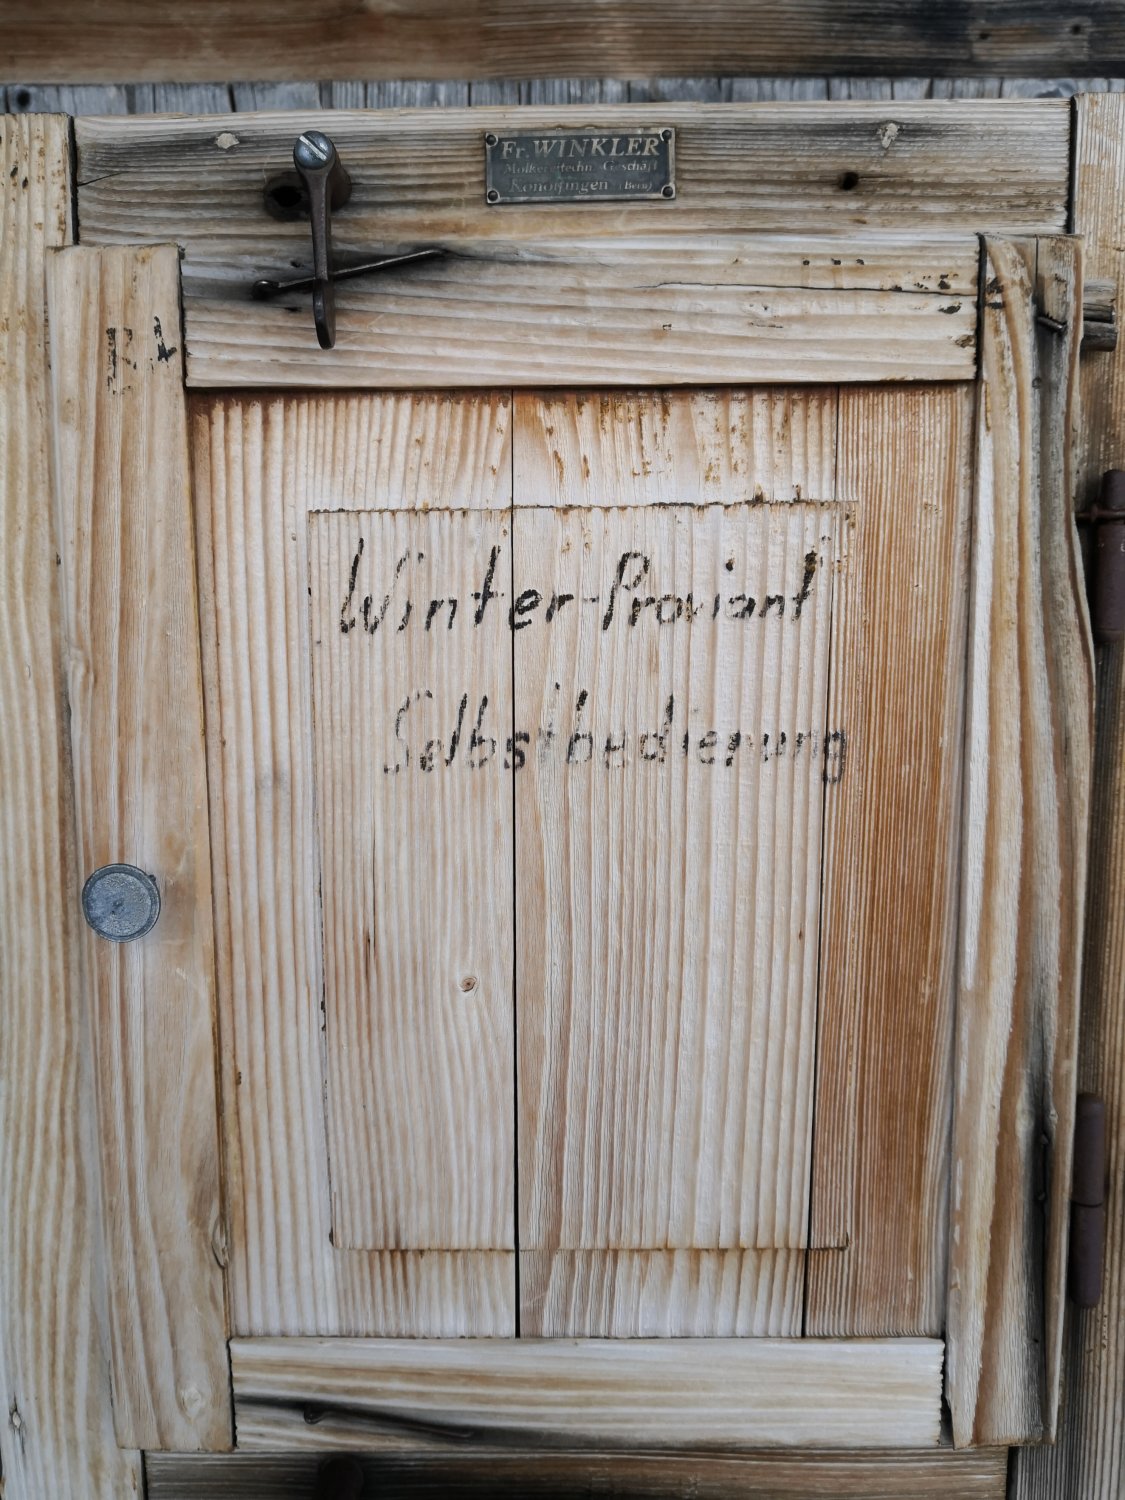 Fr. WINKLER
Molkereitechn. Geschäft
Konolfingen (Bern)
Winter-Proviant
Selbstbedienung